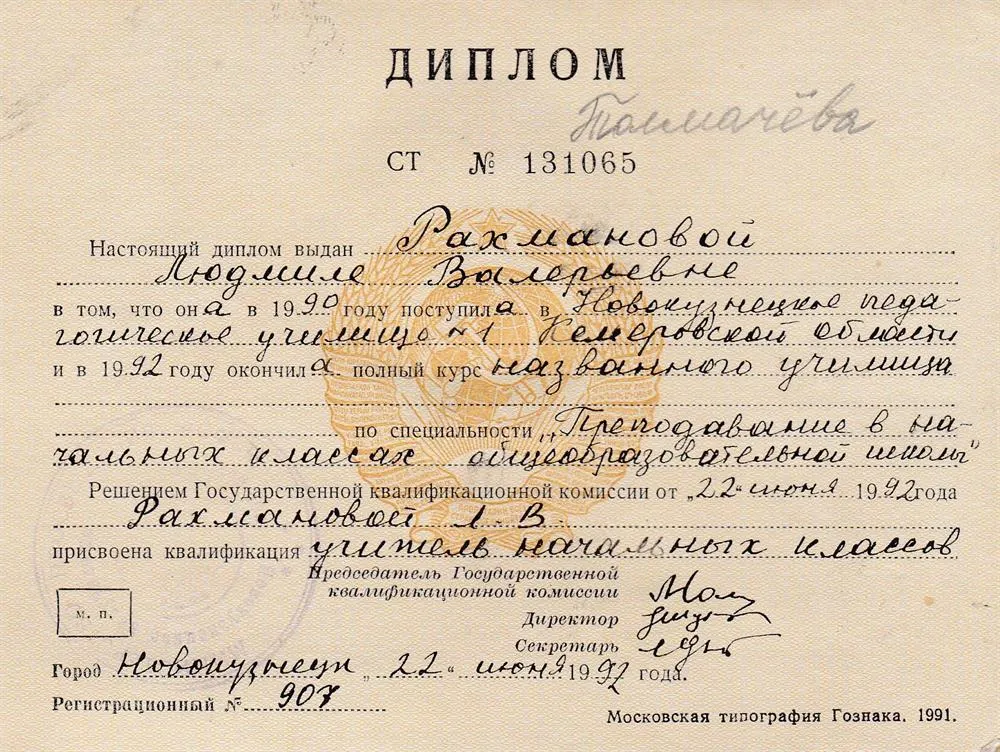 ДИПЛОМ
Толмачёва
СТ № 131065
Настоящий диплом выдан Рахмановой
Людмиле Валерьевне
в том, что она в 1990 году поступила в Новокузнецкое педа-
гогическое училище №1 Кемеровской области
и в 1992 году окончила полный курс названного училища
по специальности „Преподавание в на-
чальных классах общеобразовательной школы"
Решением Государственной квалификационной комиссии от „22" июня 1992 года
Рахмановой Л.В.
присвоена квалификация учитель начальных классов
Председатель Государственной
квалификационной комиссии
Директор
Секретарь
м. п.
Город Новокузнецк „22" июня 1992 года.
Регистрационный № 907
Московская типография Гознака. 1991.